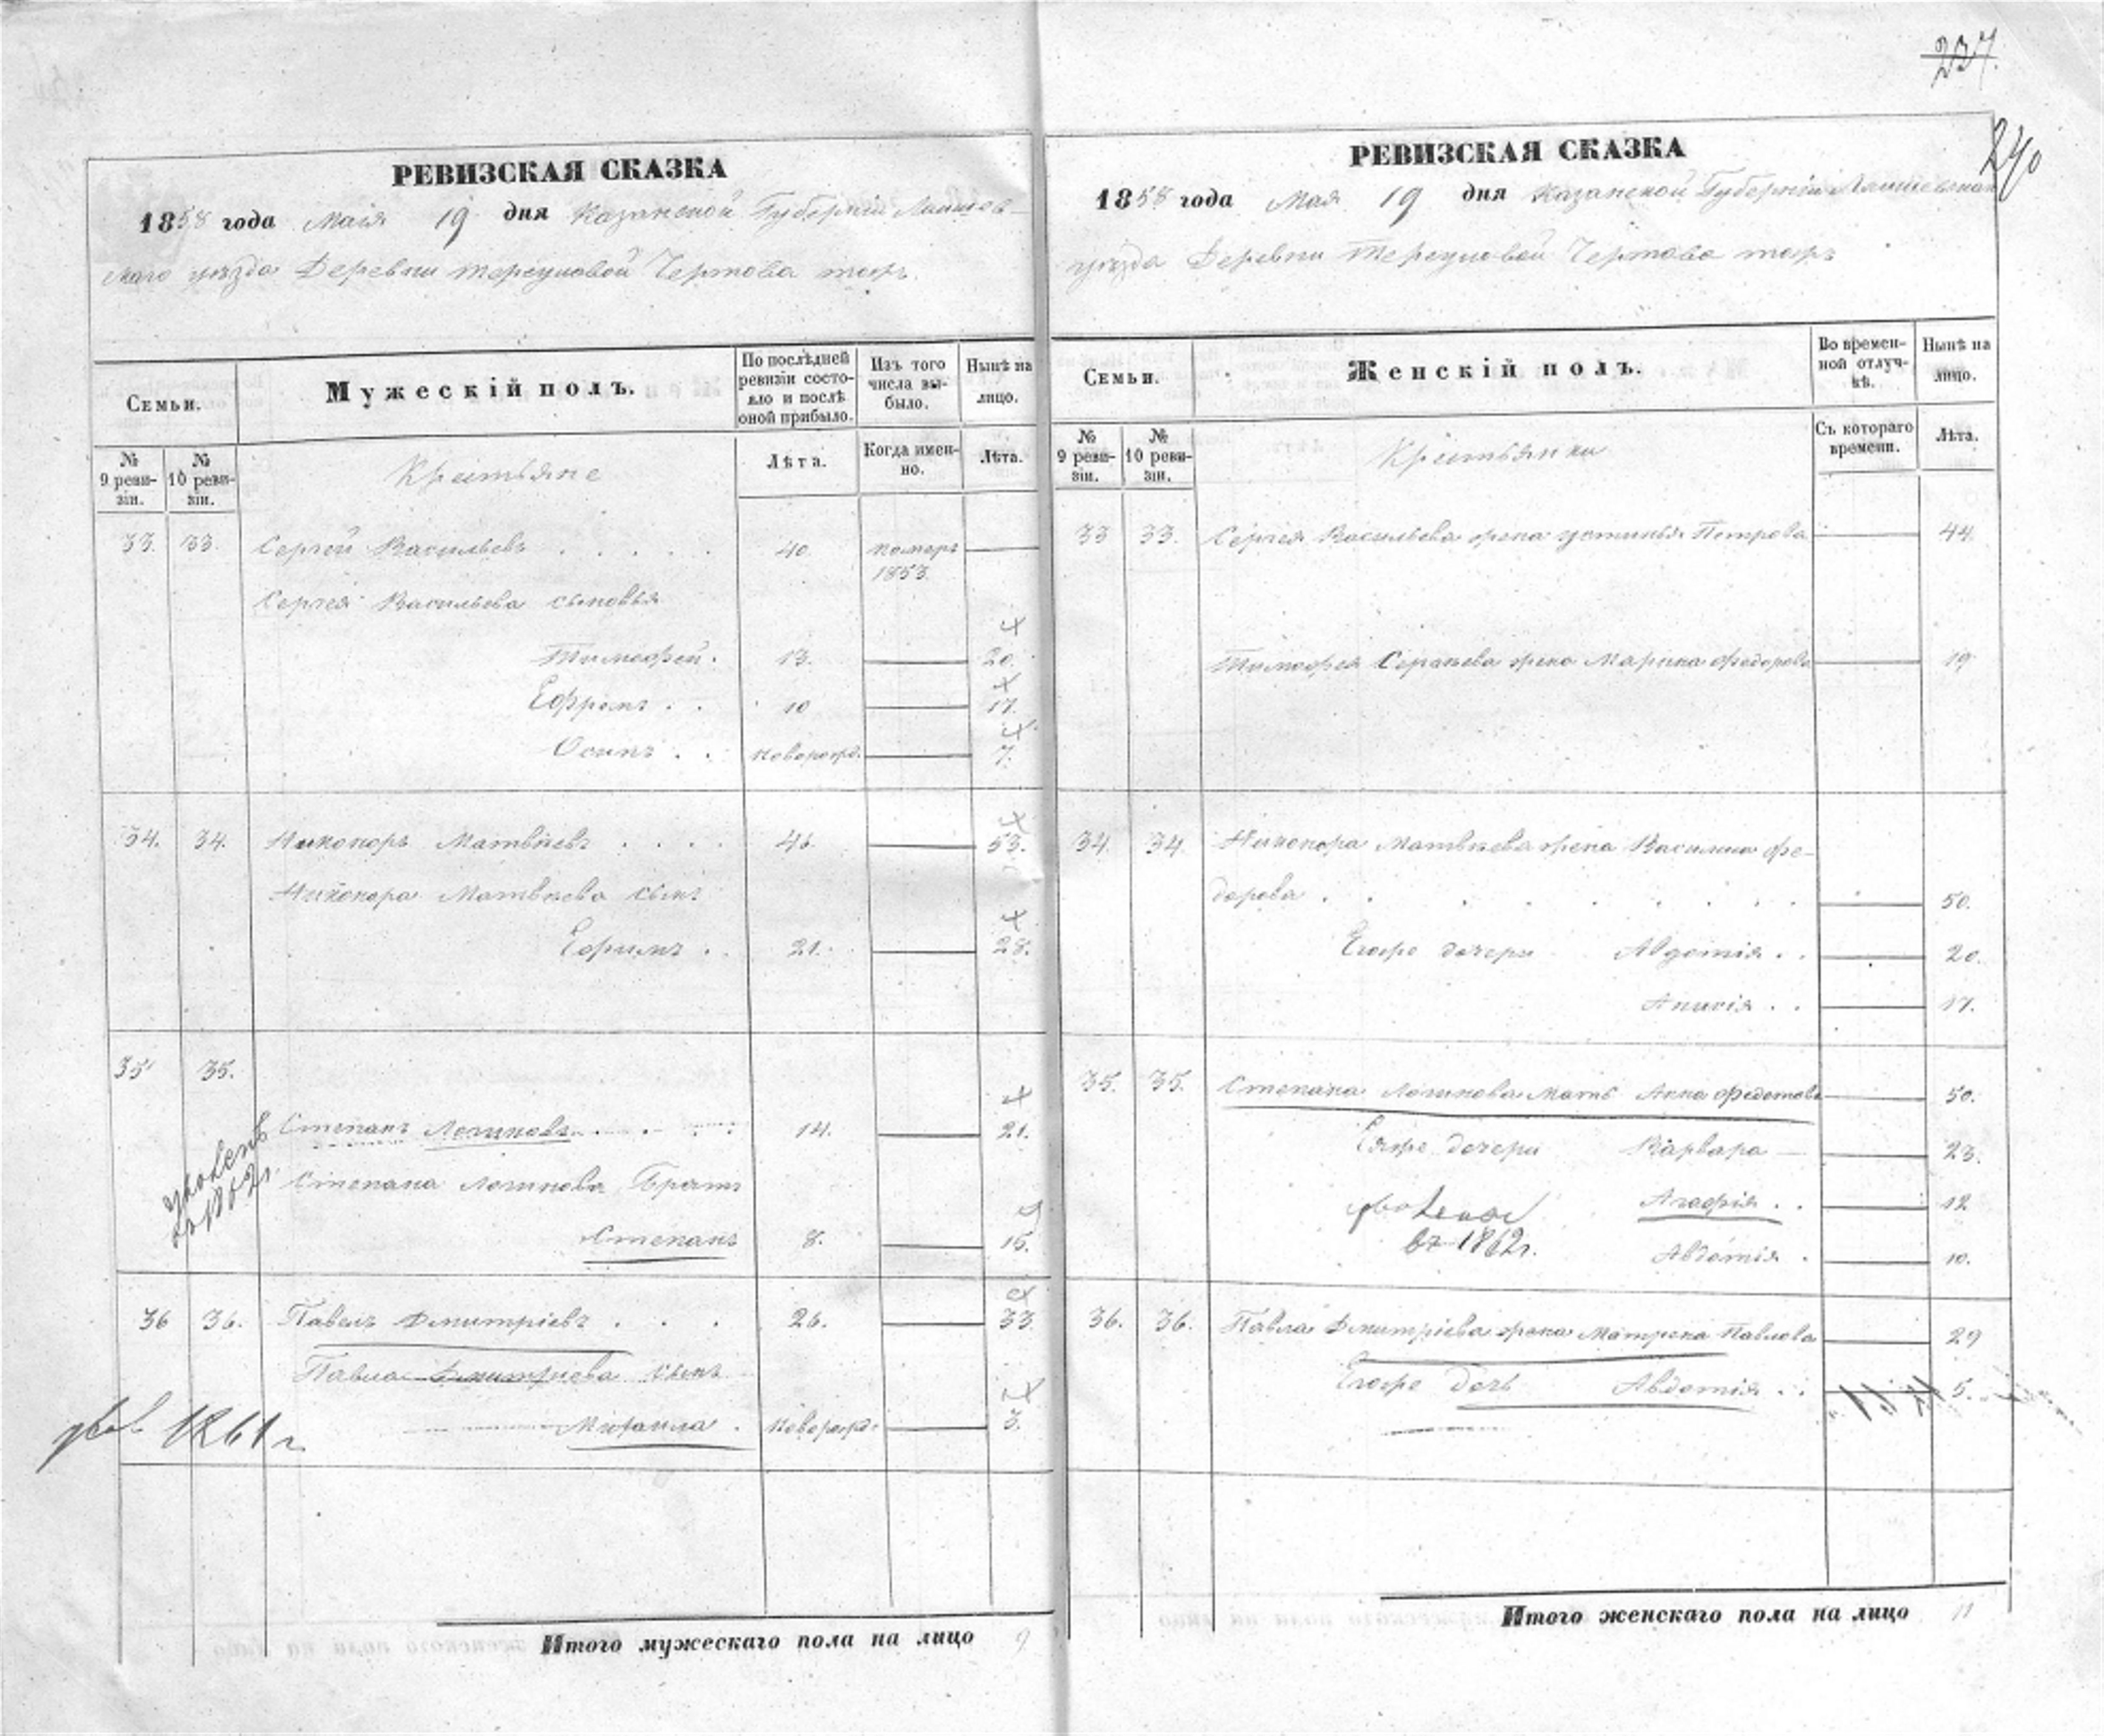 237.
240
РЕВИЗСКАЯ СКАЗКА
1858 года Маія 19 дня Казанской Губерніи Лаишев-
скаго уѣзда Деревни Чертова тожъ.
Семьи.
Мужескій полъ.
По послѣдней ревизіи состояло и послѣ оной прибыло.
Изъ того числа выбыло.
Нынѣ на лицо.
№ 9 ревизіи.
№ 10 ревизіи.
Крестьяне
Лѣта.
Когда именно.
Лѣта.
33. 33. Сергей Васильевъ . . . . . 40. померъ 1853.
Сергея Васильева сыновья
Тимофей. 13. 20.
Ефремъ . . 10 17.
Осипъ . . новорожд. 7.
34. 34. Никоноръ Матвѣевъ . . . . 46. 53.
Никонора Матвѣева сынъ
Ефимъ . . 21. 28.
35 35.
Степанъ Логиновъ 14. 21.
Степана Логинова Братъ
Степанъ 8. 15.
уволенъ
въ 1862 г.
36 36. Павелъ Дмитріевъ . . . 26. 33.
Павла Дмитріева сынъ
Михаила . новорожд. 3.
увол. 1861 г
Итого мужескаго пола на лицо 9
РЕВИЗСКАЯ СКАЗКА
1858 года Мая 19 дня Казанской Губерніи Лаишевскаго
уѣзда Деревни Чертова тожъ
Семьи.
Женскій полъ.
Во временной отлучкѣ.
Нынѣ на лицо.
№ 9 ревизіи.
№ 10 ревизіи.
Крестьянки
Съ котораго времени.
Лѣта.
33 33. Сергея Васильева жена Устинья Петрова 44.
Тимофея Сергѣева жена Марина Федорова 19
34. 34. Никонора Матвѣева жена Василиса Фе-
дорова . . . . . . . . 50.
Егоже дочери Авдотія . . 20.
Анисія . . 17.
35. 35. Степана Логинова Мать Анна Федотова 50.
Еяже дочери Варвара 23.
Агафія . . 12
Авдотія . 10.
уволена
въ 1862 г.
36. 36. Павла Дмитріева жена Матрена Павлова 29
Егоже дочь Авдотія . . 5.
Итого женскаго пола на лицо 11